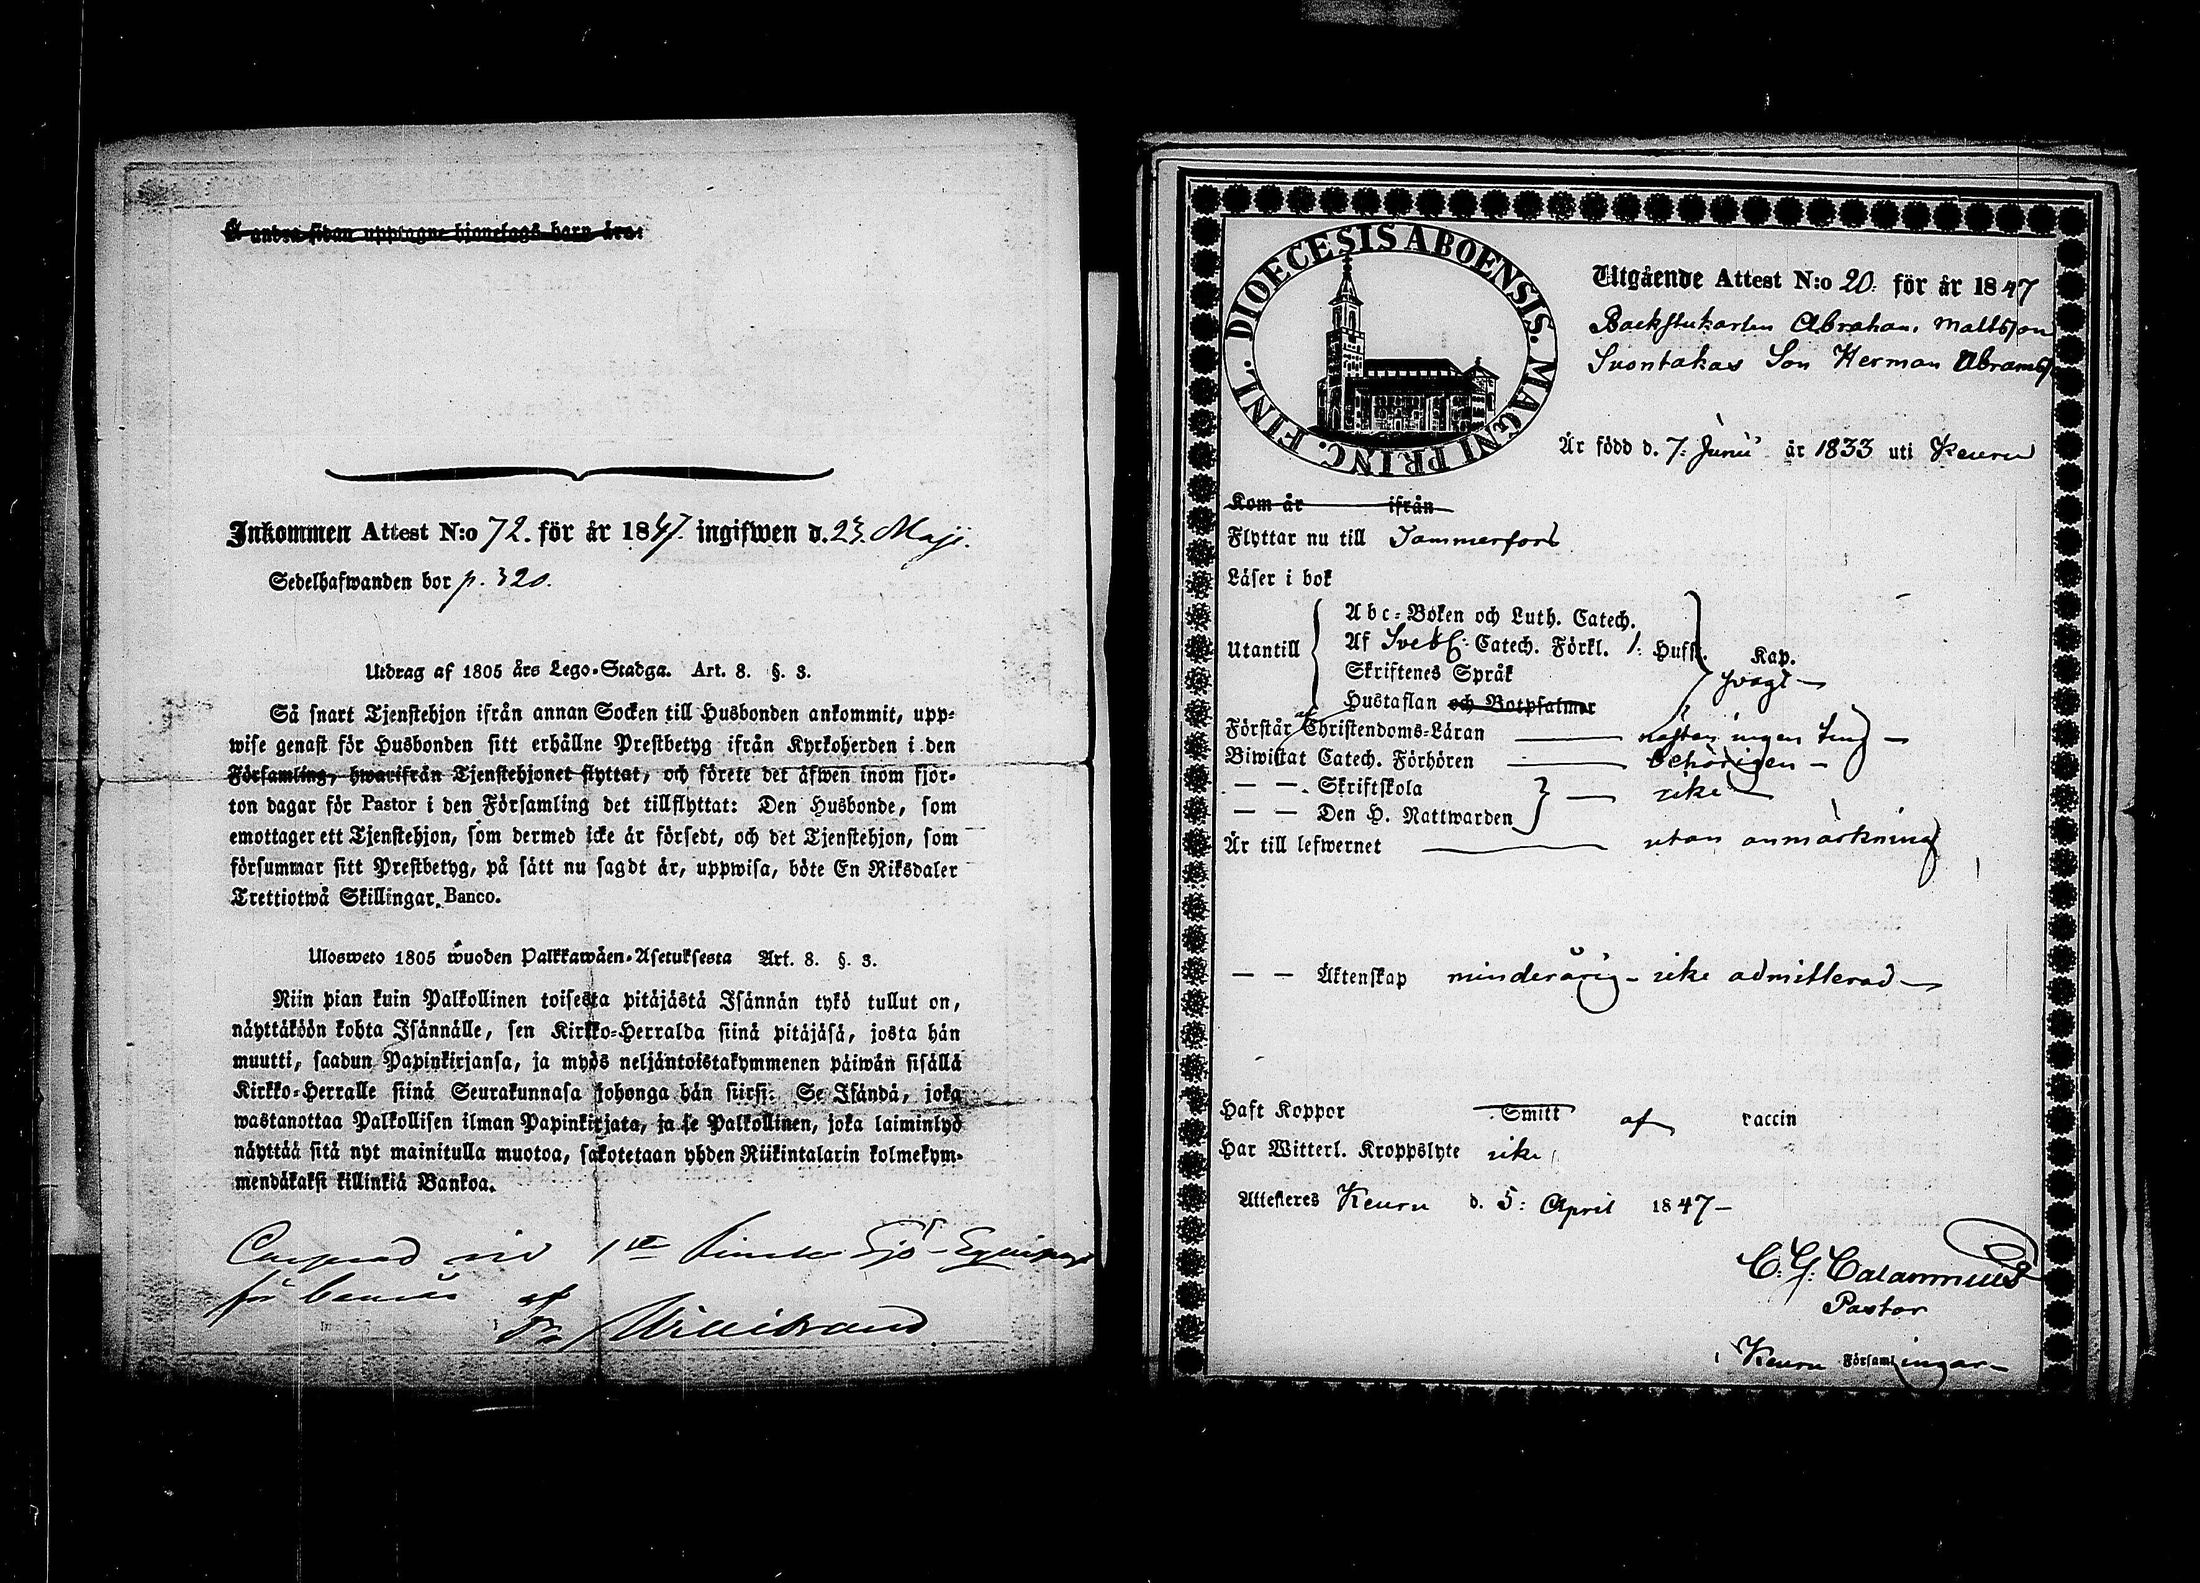 Å andra sidan upptagne hjonelags barn äro:
Inkommen Attest N:o 72. för år 1847. ingifwen d. 23. Maji.
Sedelhafwanden bor p. 320.
Utdrag af 1805 års Lego-Stadga. Art. 8. §. 3.
Så snart Tjenstehjon ifrån annan Socken till Husbonden ankommit, upp-
wise genast för Husbonden sitt erhållne Prestbetyg ifrån Kyrkoherden i den
Församling, hwarifrån Tjenstehjonet flyttat, och förete det äfwen inom fjor-
ton dagar för Pastor i den Församling det tillflyttat: Den Husbonde, som
emottager ett Tjenstehjon, som dermed icke är försedt, och det Tjenstehjon, som
försummar sitt Prestbetyg, på sätt nu sagdt är, uppwisa, böte En Riksdaler
Trettiotwå Skillingar Banco.
Ulosweto 1805 wuoden Palkkawäen-Asetuksesta Art. 8. §. 3.
Niin pian kuin Palkollinen toisesta pitäjästä Isännän tykö tullut on,
näyttäköön kohta Isännälle, sen Kirkko-Herralda siinä pitäjäsä, josta hän
muutti, saadun Papinkirjansa, ja myös neljäntoistakymmenen päiwän sisällä
Kirkko-Herralle siinä Seurakunnasa johonga hän siirsi: Se Isändä, joka
wastanottaa Palkollisen ilman Papinkirjata, ja se Palkollinen, joka laiminlyö
näyttää sitä nyt mainitulla muotoa, sakotetaan yhden Riikintalarin kolmekym-
mendäkaksi killinkiä Bankoa.
vid 1sta Finska Sjö-Equipage
af
DIOECESIS ABOENSIS. MAGNI PRINC. FINL.
Utgående Attest N:o 20. för år 1847
Backstukarlen Abraham Mattsson
Son Herman Abramss
Är född d. 7: Junii år 1833 uti Keuru
Kom år ifrån
Flyttar nu till Tammerfors
Läser i bok
Abc-Boken och Luth. Catech.
Utantill Af Sveb: Catech. Förkl. 1: Hufst. Kap.
Skriftenes Språk svagt
Hustaflan och Botpsalmer
Förstår af Christendoms-Läran nästan ingen ting
Biwistat Catech. Förhören behörigen
— — Skriftskola icke
— — Den H. Nattwarden
Är till lefwernet utan anmärkning
— — Äktenskap minderårig - icke admitterad
Haft Koppor Smitt af vaccin
Har Witterl. Kroppslyte icke
Attesteres Keuru d. 5: April 1847
C. G: Calamnius
Pastor
i Keuru Församlingar